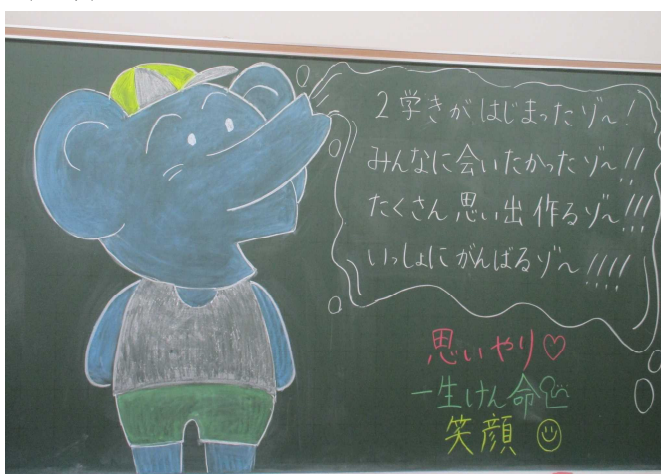 2学きがはじまったゾ～!
みんなに会いたかったゾ～!!
たくさん思い出作るゾ～!!!
いっしょにがんばるゾ～!!!!
思いやり♡
一生けん命
笑顔☺